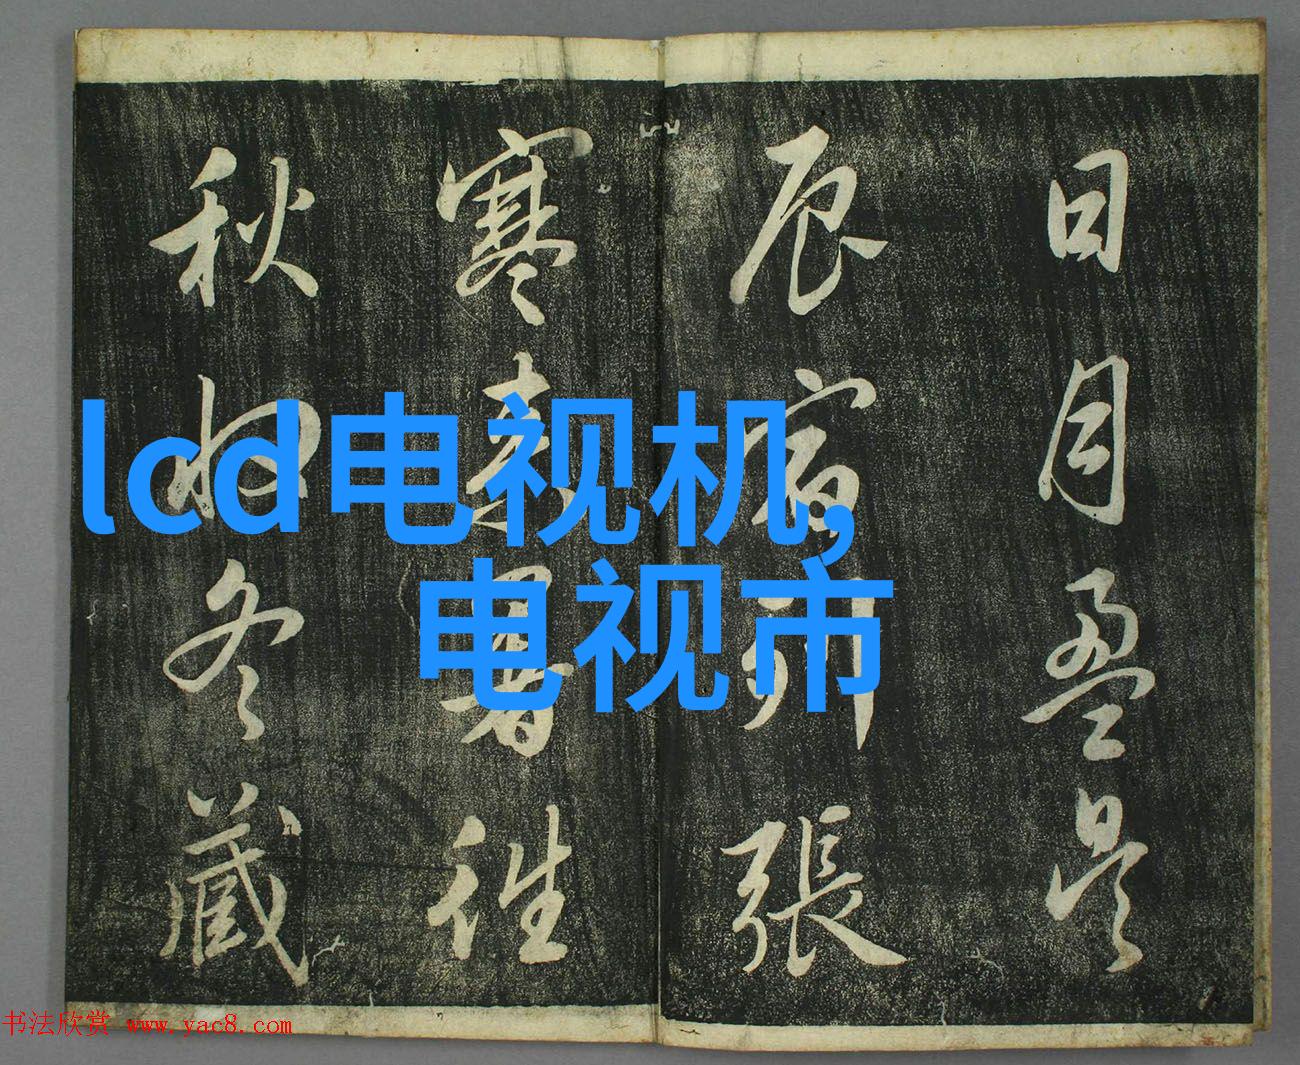 日月盈昃
辰宿列張
寒來暑往
秋收冬藏
lcd电视机,
电视市
书法欣赏 www.yac8.com